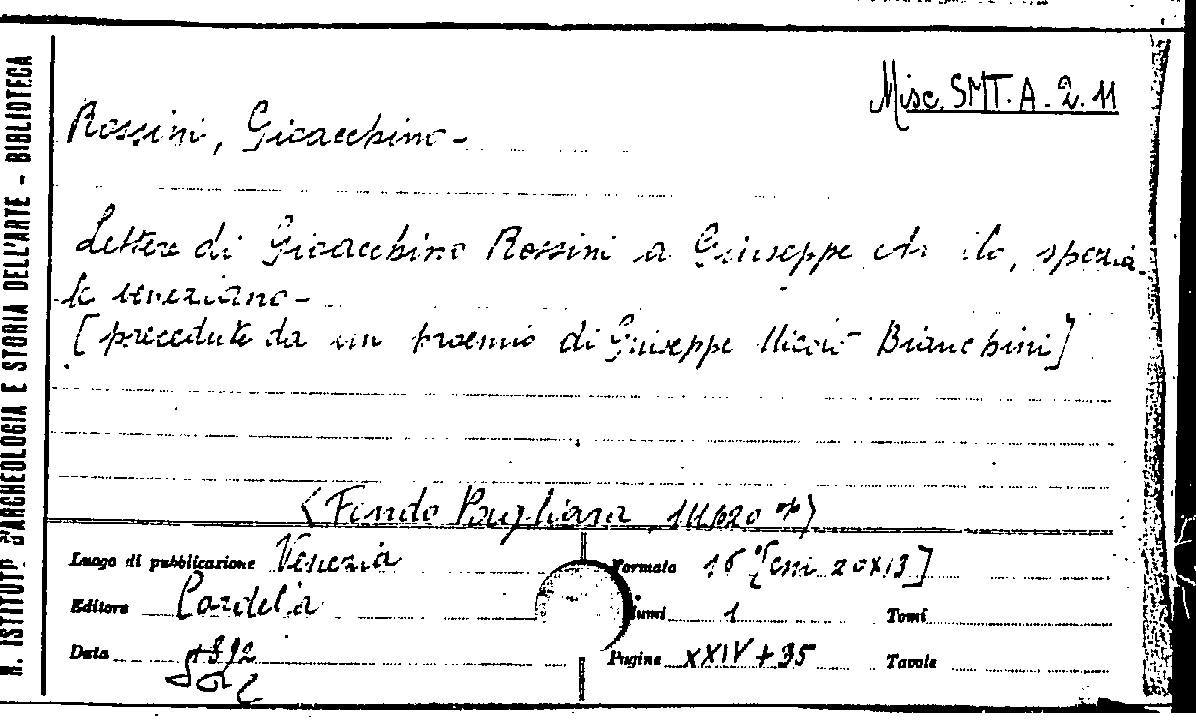 R. ISTITUTO D'ARCHEOLOGIA E STORIA DELL'ARTE - BIBLIOTECA
Misc. SMT. A. 2. 11
Rossini, Gioacchino -
Lettere di Gioacchino Rossini a Giuseppe spezia-
le veneziano -
[precedute da un proemio di Giuseppe Nicolò Bianchini]
<Fondo Pagliara >
Luogo di pubblicazione Venezia Formato 16° [cm. 20x13]
Editore umi 1 Tomi
Data 1892 Pagine XXIV + 35 Tavole